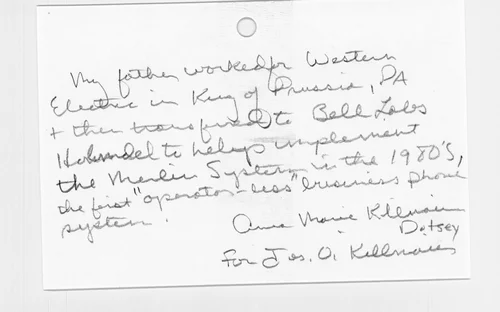 My father worked for Western
Electric in King of Prussia, PA
+ then transferred to Bell Labs
Holmdel to help implement
the Merlin System in the 1980's,
the first "operator-less" business phone
system.
Anna Marie Killmair
Dotsey
For Jos. O. Killmair